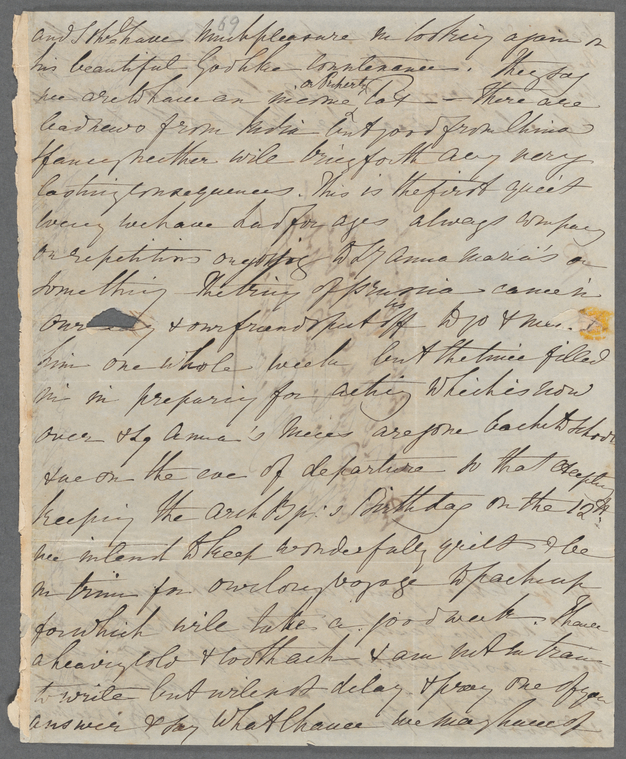 69
and I shd have much pleasure in looking again on
his beautiful Godlike countenance. They say
or Property
we are to have an income Tax -- There are
bad news from India but good from China
I fancy neither will bring forth any very
lasting consequences. This is the first quiet
we have had for ages always company
or repetitions or going to Ly Anna Maria's or
something The King of Prussia came in
our & our friends put off to go & meet
him one whole week but the time filled
in in preparing for acting which is now
over & Ly Anna's nieces are gone back to school
& we on the eve of departure so that except
keeping the ArchBp:'s Birthday on the 12th.
we intend to keep wonderfully quiet & be
in trim for our long voyage to pack up
for which will take a good week. I have
a heavy cold & toothach & am not in train
to write but will not delay & pray one of you
answer & say what chance we may have of